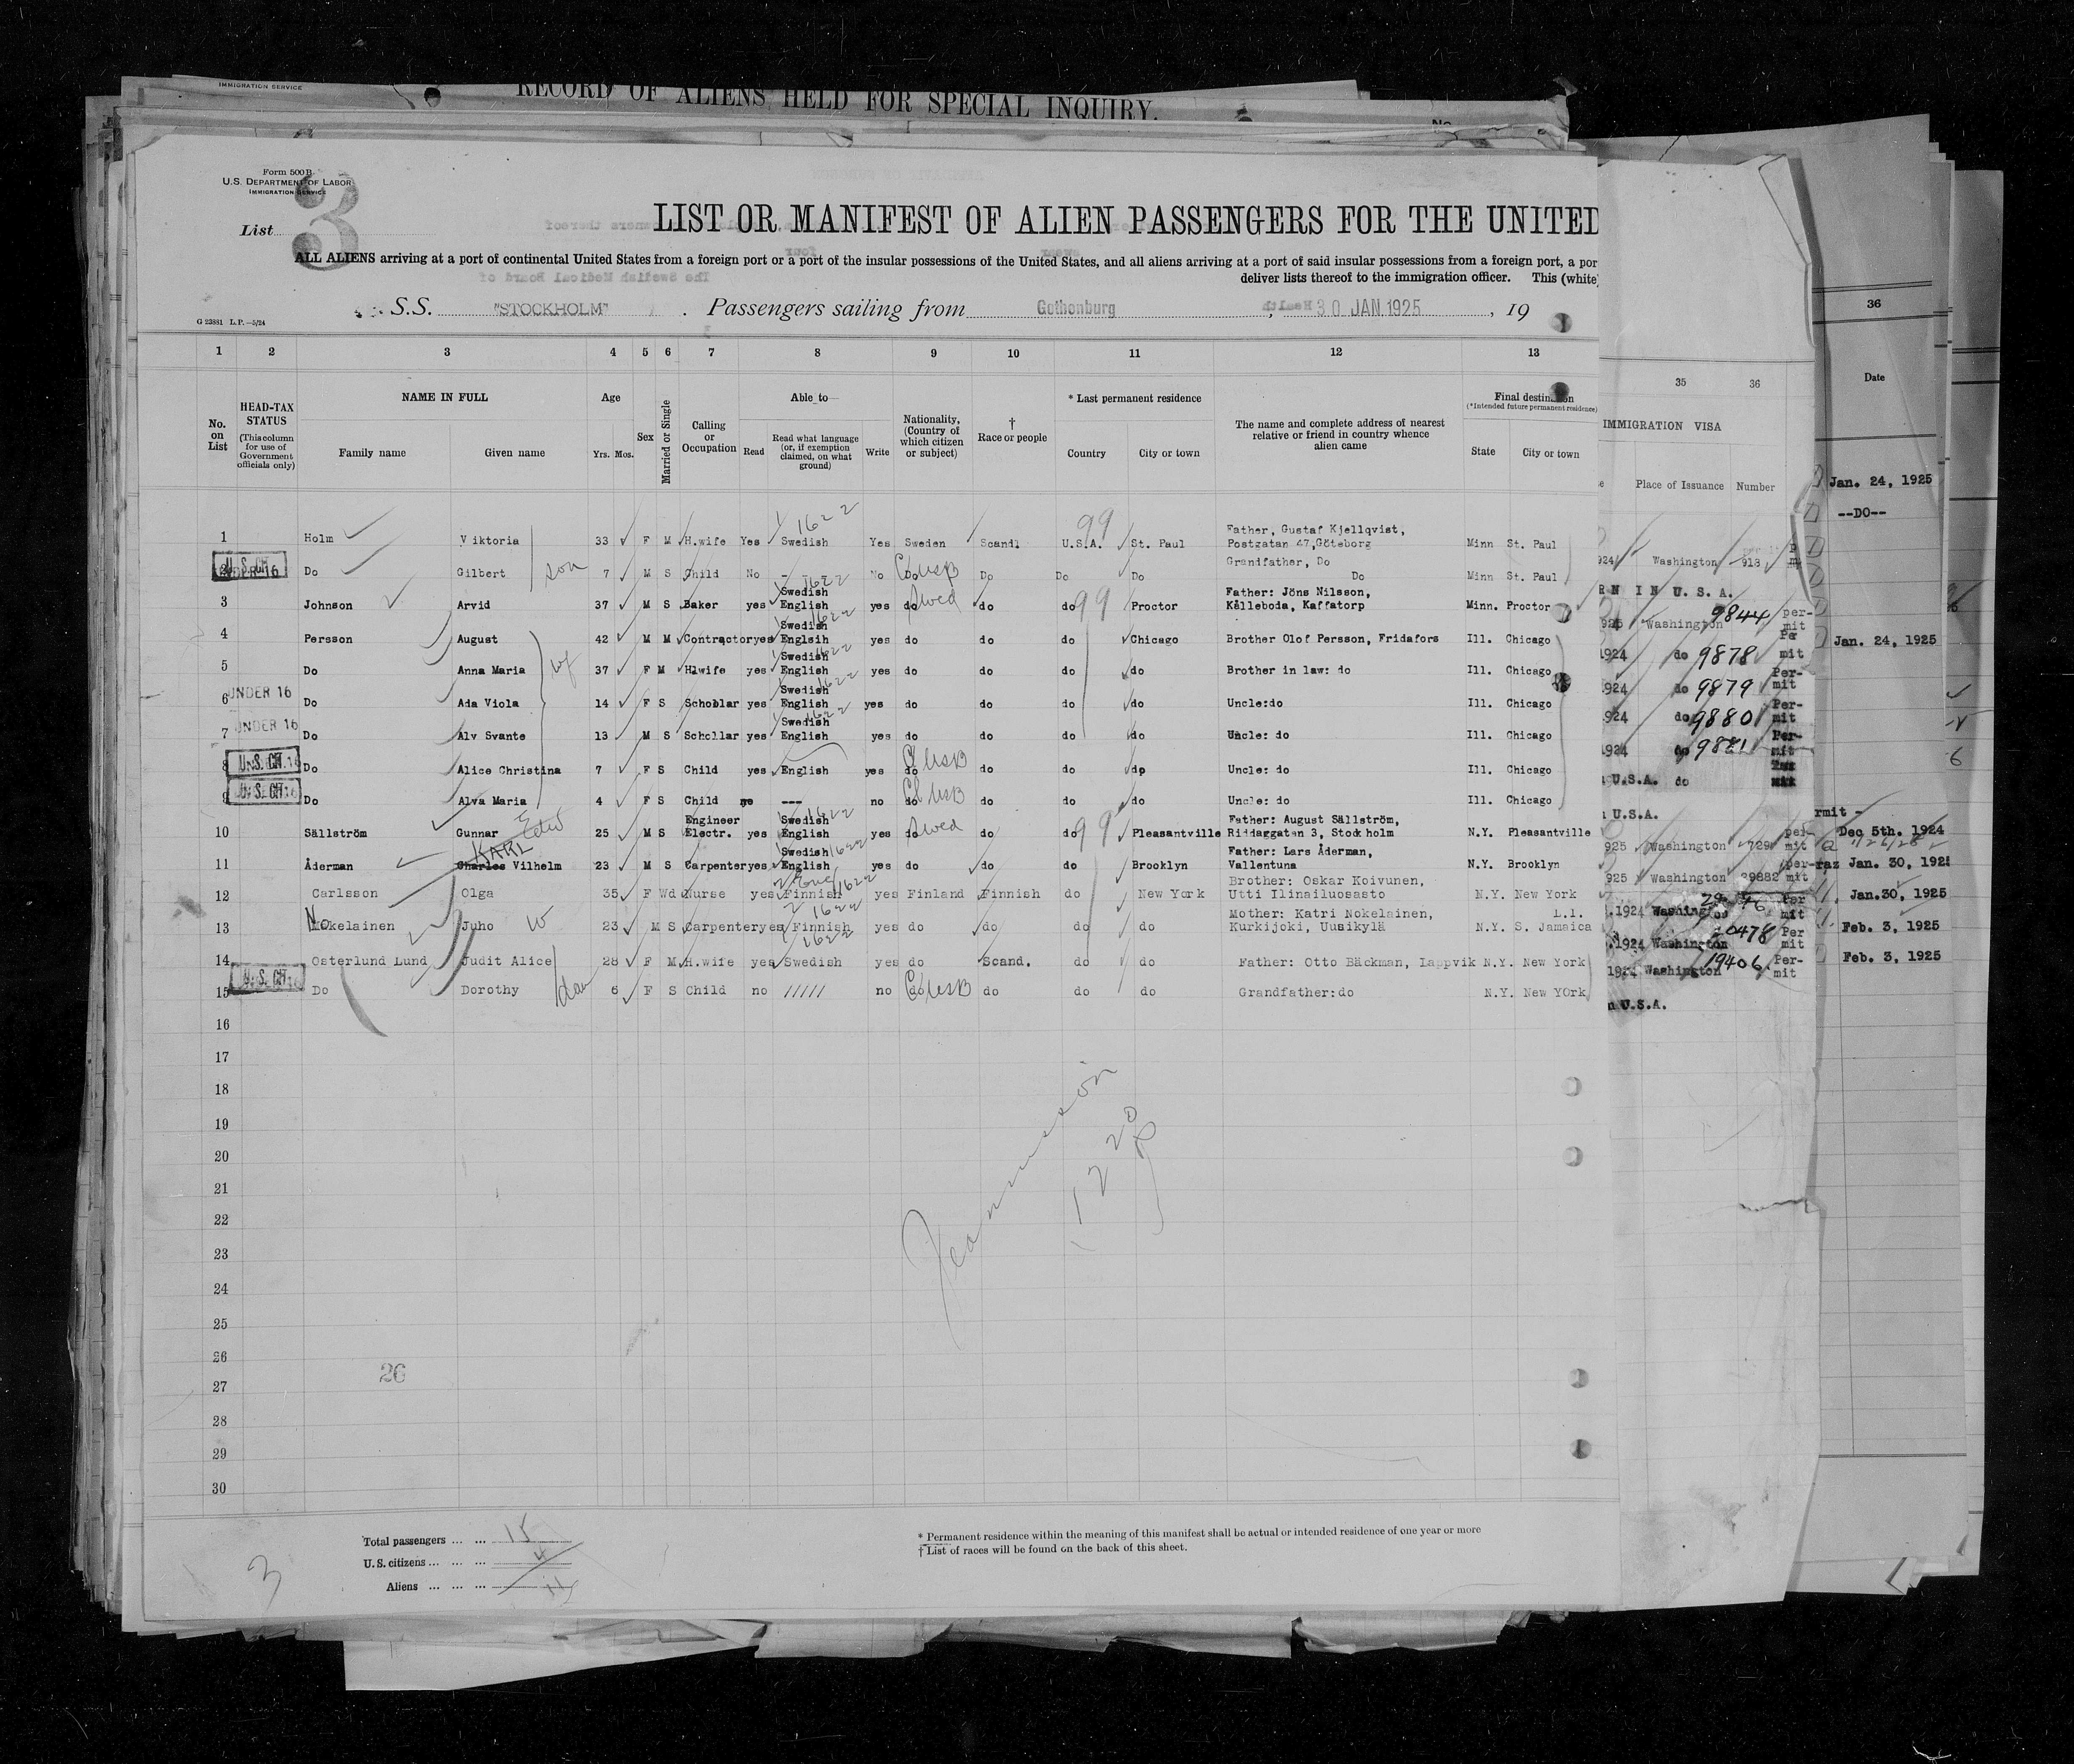 IMMIGRATION SERVICE
RECORD OF ALIENS HELD FOR SPECIAL INQUIRY.
No
Form 500 B
U.S. DEPARTMENT OF LABOR
IMMIGRATION SERVICE
3
List
LIST OR MANIFEST OF ALIEN PASSENGERS FOR THE UNITED
ALL ALIENS arriving at a port of continental United States from a foreign port or a port of the insular possessions of the United States, and all aliens arriving at a port of said insular possessions from a foreign port, a por
deliver lists thereof to the immigration officer. This (white)
S.S. "STOCKHOLM" . Passengers sailing from Gothenburg , 30 JAN 1925 , 19
G 23881 L.P.—5/24
1 2 3 4 5 6 7 8 9 10 11 12 13 35 36 36
No. on List
HEAD-TAX STATUS (This column for use of Government officials only)
NAME IN FULL Family name Given name
Age Yrs. Mos.
Sex
Married or Single
Calling or Occupation
Able to— Read Read what language (or, if exemption claimed, on what ground) Write
Nationality, (Country of which citizen or subject)
† Race or people
* Last permanent residence Country City or town
The name and complete address of nearest relative or friend in country whence alien came
Final destination (*Intended future permanent residence) State City or town
IMMIGRATION VISA Place of Issuance Number
Date
1 Holm Viktoria 33 F M H.wife Yes Swedish 1622 Yes Sweden Scandl U.S.A. 99 St. Paul Father, Gustaf Kjellqvist, Postgatan 47,Göteborg Minn St. Paul
924 Washington 913
U.S. CIT. UNDER 16
2 Do Gilbert son 7 M S Child No - - No Do USB Do Do Do Grandfather, Do Do Minn St. Paul
RN IN U.S.A.
3 Johnson Arvid 37 M S Baker yes Swedish English 1622 yes do Swed do do 99 Proctor Father: Jöns Nilsson, Källeboda, Kaffatorp Minn. Proctor
925 Washington 9844 per-mit
4 Persson August 42 M M Contractor yes Swedish Englsih 1622 yes do do do Chicago Brother Olof Persson, Fridafors Ill. Chicago
1924 do 9878 Per mit
5 Do Anna Maria wf 37 F M H.wife yes Swedish English 1622 yes do do do do Brother in law: do Ill. Chicago
924 do 9879 Per-mit
UNDER 16
6 Do Ada Viola 14 F S Schollar yes Swedish English 1622 yes do do do do Uncle:do Ill. Chicago
924 do 9880 Per-mit
UNDER 16
7 Do Alv Svante 13 M S Schollar yes Swedish English 1622 yes do do do do Uncle: do Ill. Chicago
1924 do 9881 Per-mit
U.S. CIT.
8 Do Alice Christina 7 F S Child yes English yes do USB do do do Uncle: do Ill. Chicago
U.S.A. do
U.S. CIT.
9 Do Alva Maria 4 F S Child no --- no do USB do do do Uncle: do Ill. Chicago
U.S.A.
10 Sällström Gunnar 25 M S Engineer Electr. yes Swedish English 1622 yes do Swed do do 99 Pleasantville Father: August Sällström, Riddaggatan 3, Stockholm N.Y. Pleasantville
925 Washington 729 per-mit
11 Åderman Charles KARL Vilhelm 23 M S Carpenter yes Swedish English 1622 yes do do do Brooklyn Father: Lars Åderman, Vallentuna N.Y. Brooklyn
925 Washington 39882 per-mit
12 Carlsson Olga 35 F Wd Nurse yes Finnish 1622 yes Finland Finnish do New York Brother: Oskar Koivunen, Utti Ilinailuosasto N.Y. New York
.1924 Washington Per mit
13 Nokelainen Juho 23 M S Carpenter yes Finnish 1622 yes do do do do Mother: Katri Nokelainen, Kurkijoki, Uusikylä N.Y. L.I. S. Jamaica
.1924 Washington 20478 Per mit
14 Osterlund Lund Judit Alice 28 F M H.wife yes Swedish yes do Scand. do do Father: Otto Bäckman, Lappvik N.Y. New York
1924 Washington 19406 Per-mit
U.S. CIT.
15 Do Dorothy dau 6 F S Child no ///// no do USB do do do Grandfather:do N.Y. New YOrk
n U.S.A.
16
17
18
19
20
21
22
23
24
25
26
27
28
29
30
26
Jan. 24, 1925
--DO--
Jan. 24, 1925
rmit -
Dec 5th. 1924
Jan. 30, 1925
Jan.30, 1925
Feb. 3, 1925
Feb. 3, 1925
6
Total passengers ... ... 15
U.S. citizens ... ... ... 4
Aliens ... ... ... 11
3
* Permanent residence within the meaning of this manifest shall be actual or intended residence of one year or more
† List of races will be found on the back of this sheet.